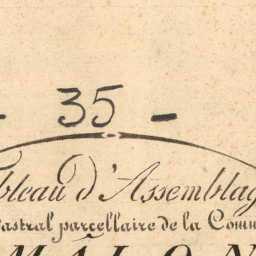 - 35 -
bleau d'Assemblag
astral parcellaire de la Comm
MALON